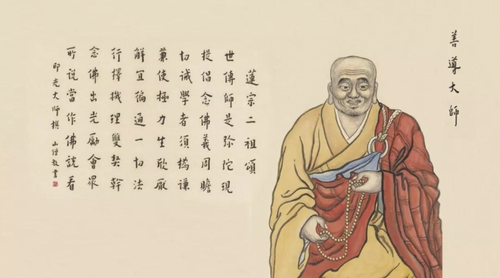 善導大師
蓮宗二祖頌
世傳師是彌陀現
提倡念佛義周贍
切誡學者須撝謙
兼使極力生欣厭
解宜徧通一切法
行擇機理雙契幹
念佛出光勵會眾
所說當作佛說看
印光大師撰 山僧敬書